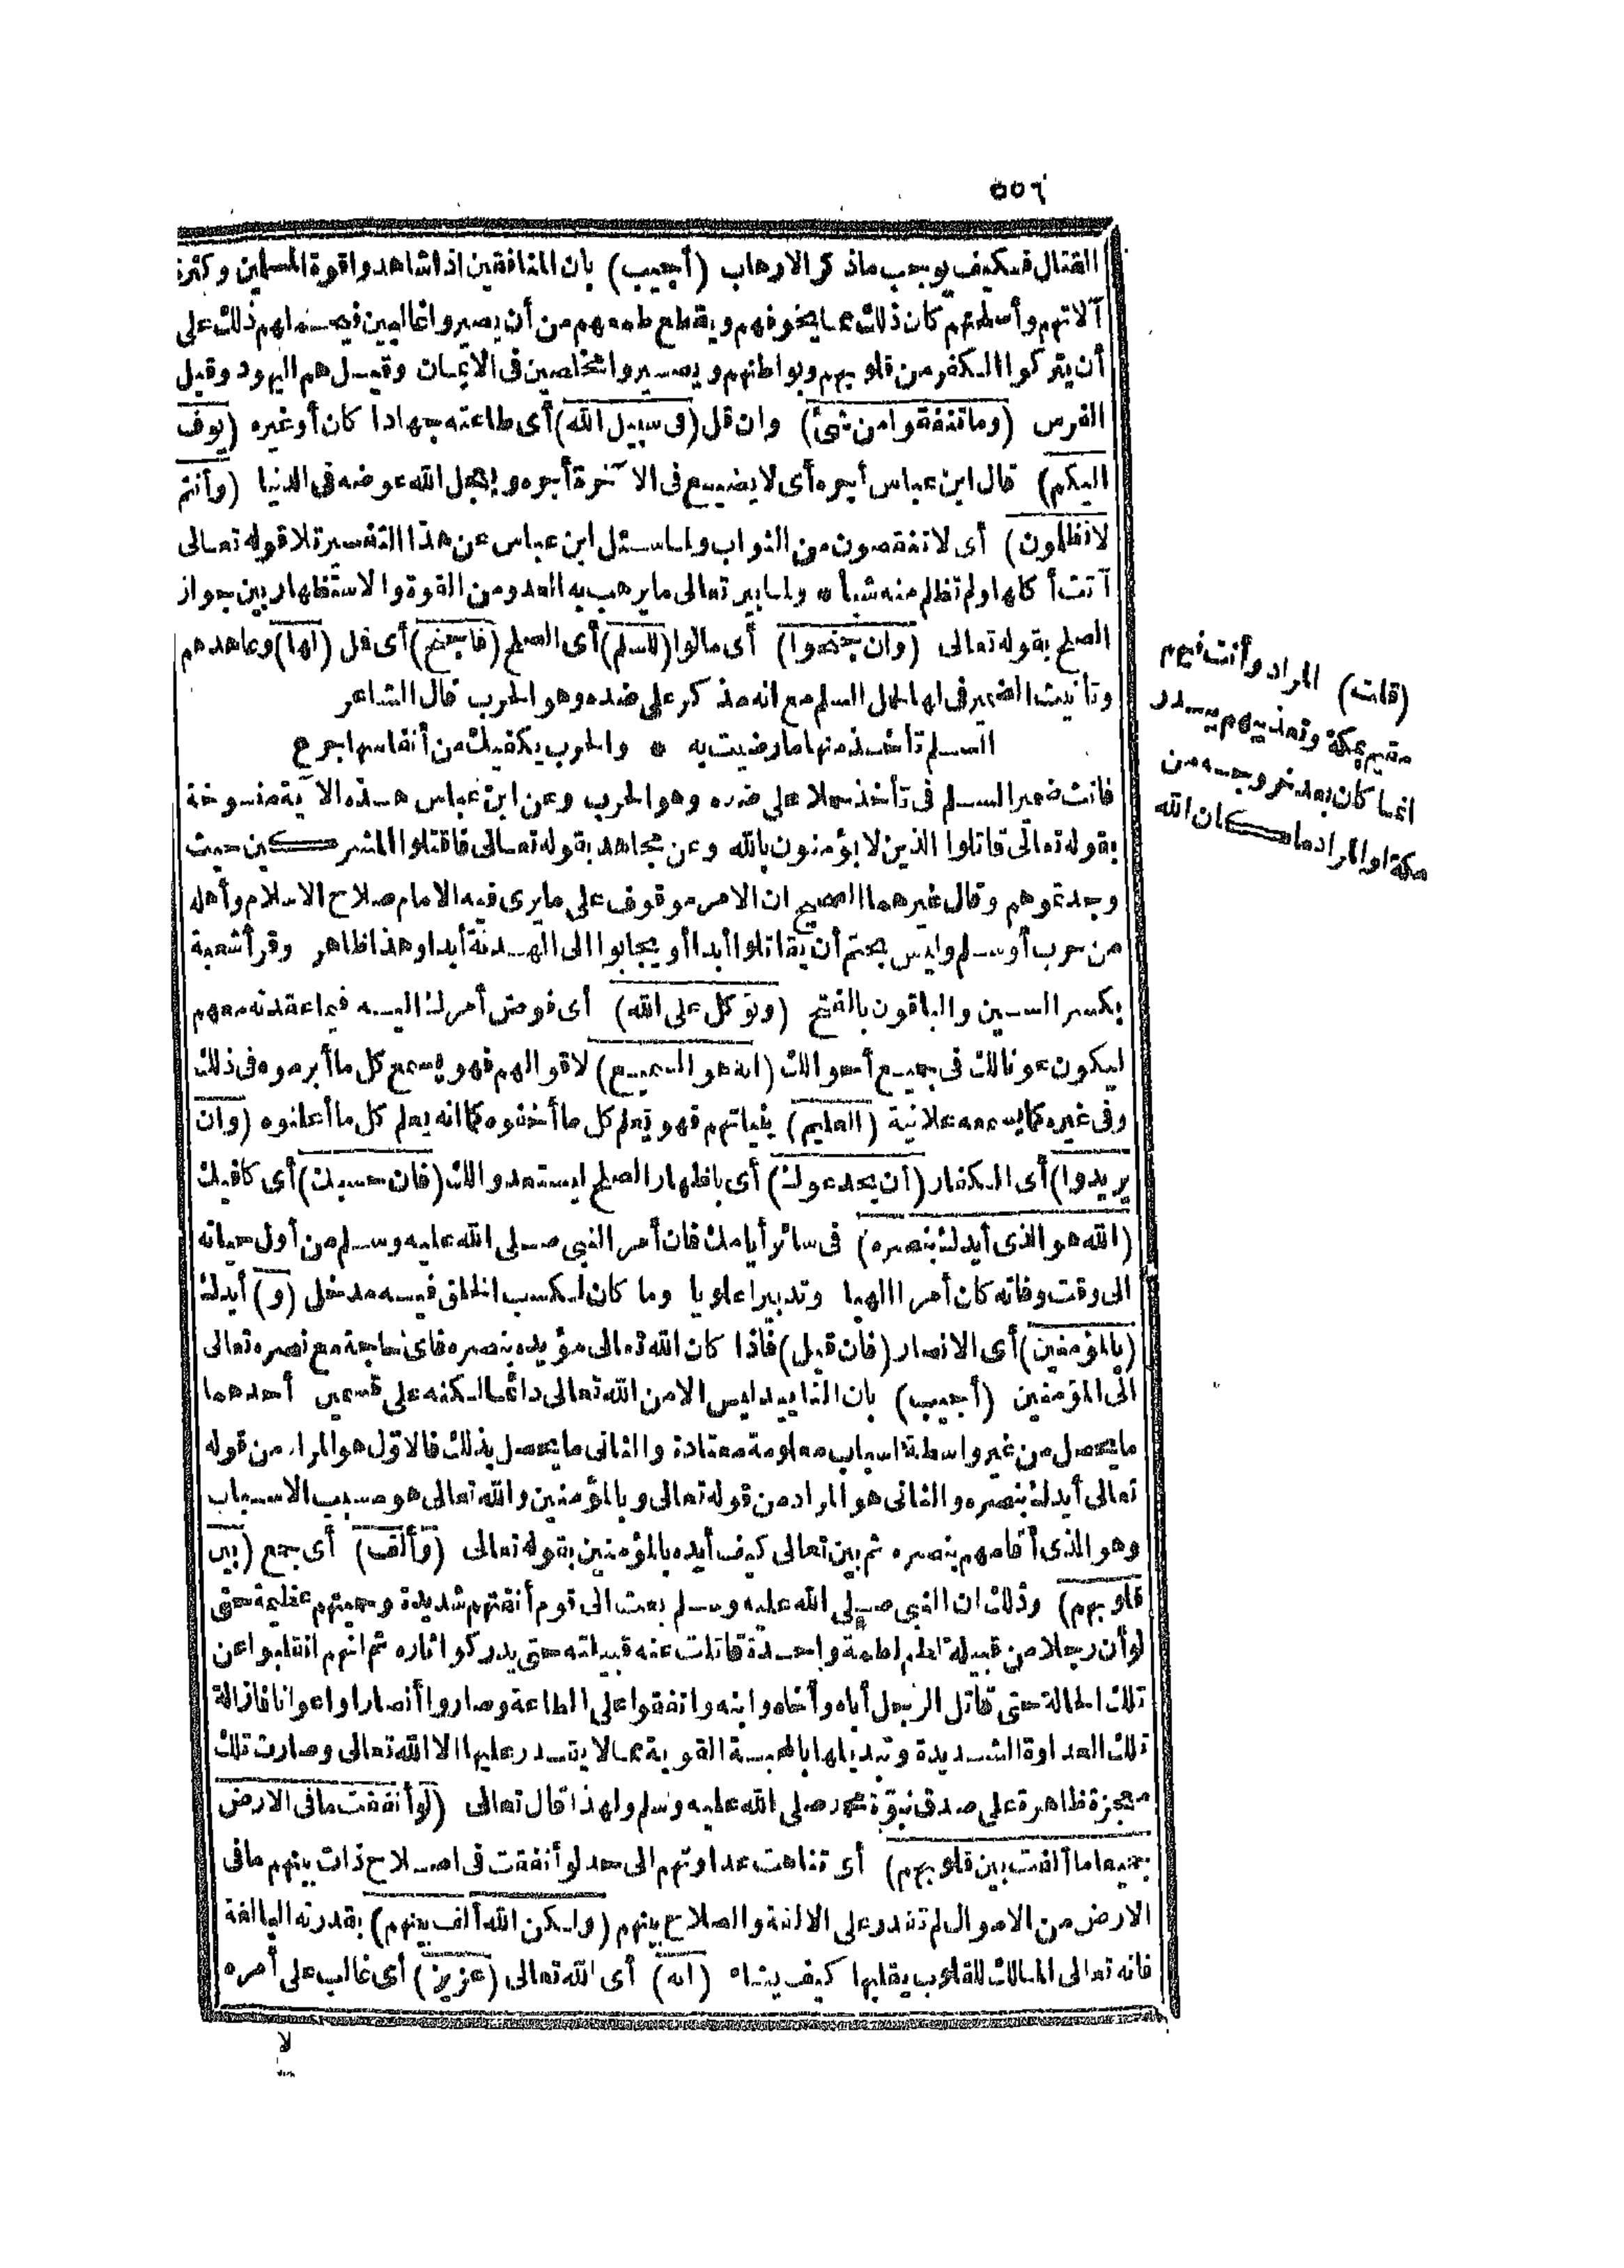 ٥٥٦
القتال فكيف يوجب ماذكر الارهاب (أجيب) بان المنافقين اذا شاهدوا قوة المسلمين وكثرة
آلاتهم وأسلحتهم كان ذلك مما يخوفهم ويقطع طمعهم من أن يصيروا غالبين فيحملهم ذلك على
أن يتركوا الكفر من قلوبهم وبواطنهم ويصيروا مخلصين فى الايمان وقيل هم اليهود وقيل
الفرس (وما تنفقوا من شئ) وان قل (فى سبيل الله) أى طاعته جهادا كان أو غيره (يوف
اليكم) قال ابن عباس أجره أى لا يضيع فى الآخرة أجره ويعجل الله عوضه فى الدنيا (وأنتم
لا تظلمون) أى لا تنقصون من الثواب ولما سئل ابن عباس عن هذا التفسير تلا قوله تعالى
آتت أكلها ولم تظلم منه شيأ * ولما بين تعالى ما يرهب به العدو من القوة والاستظهار بين جواز
الصلح بقوله تعالى (وان جنحوا) أى مالوا (للسلم) أى الصلح (فاجنح) أى فل (لها) وعاهدهم
وتأنيث الضمير فى لها لحمل السلم مع انه مذكر على ضده وهو الحرب قال الشاعر
السلم تأخذ منها ما رضيت به * والحرب يكفيك من أنفاسها جرع
فانث ضمير السلم فى تأخذ حملا على ضده وهو الحرب وعن ابن عباس هذه الآية منسوخة
بقوله تعالى قاتلوا الذين لا يؤمنون بالله وعن مجاهد بقوله تعالى فاقتلوا المشركين حيث
وجدتموهم وقال غيرهما الصحيح ان الامر موقوف على ما يرى فيه الامام صلاح الاسلام وأهله
من حرب أو سلم وليس بحتم أن يقاتلوا أبدا أو يجابوا الى الهدنة أبدا وهذا ظاهر وقرأ شعبة
بكسر السين والباقون بالفتح (وتوكل على الله) أى فوض أمرك اليه فيما عقدته معهم
ليكون عونا لك فى جميع أحوالك (انه هو السميع) لاقوالهم فهو يسمع كل ما أبرموه فى ذلك
وفى غيره كما يسمعه علانية (العليم) بنياتهم فهو يعلم كل ما أخفوه كما انه يعلم كل ما أعلنوه (وان
يريدوا) أى الكفار (أن يخدعوك) أى باظهار الصلح ليستعدوا لك (فان حسبك) أى كافيك
(الله هو الذى أيدك بنصره) فى سائر أيامك فان أمر النبى صلى الله عليه وسلم من أول حياته
الى وقت وفاته كان أمرا الهيا وتدبيرا علويا وما كان لكسب الخلق فيه مدخل (و) أيدك
(بالمؤمنين) أى الانصار (فان قيل) فاذا كان الله تعالى مؤيده بنصره فاى حاجة مع نصره تعالى
الى المؤمنين (أجيب) بان التأييد ليس الا من الله تعالى دائما لكنه على قسمين أحدهما
ما يحصل من غير واسطة اسباب معلومة معتادة والثانى ما يحصل بذلك فالاول هو المراد من قوله
تعالى أيدك بنصره والثانى هو المراد من قوله تعالى وبالمؤمنين والله تعالى هو مسبب الاسباب
وهو الذى أقامهم بنصره ثم بين تعالى كيف أيده بالمؤمنين بقوله تعالى (وألف) أى جمع (بين
قلوبهم) وذلك ان النبى صلى الله عليه وسلم بعث الى قوم أنفتهم شديدة وحميتهم عظيمة حتى
لو أن رجلا من قبيلة لطم لطمة واحدة قاتلت عنه قبيلته حتى يدركوا ثاره ثم انهم انقلبوا عن
تلك الحالة حتى قاتل الرجل أباه وأخاه وابنه واتفقوا على الطاعة وصاروا أنصارا واعوانا فازالة
تلك العداوة الشديدة وتبديلها بالمحبة القوية مما لا يقدر عليها الا الله تعالى وصارت تلك
معجزة ظاهرة على صدق نبوة محمد صلى الله عليه وسلم ولهذا قال تعالى (لو أنفقت ما فى الارض
جميعا ما ألفت بين قلوبهم) أى تناهت عداوتهم الى حد لو أنفقت فى اصلاح ذات بينهم ما فى
الارض من الاموال لم تقدر على الالفة والصلاح بينهم (ولكن الله ألف بينهم) بقدرته البالغة
فانه تعالى المالك للقلوب يقلبها كيف يشاء (انه) أى الله تعالى (عزيز) أى غالب على أمره
لا
(قلت) المراد وأنت فيهم
مقيم بمكة وتعذيبهم ببدر
انما كان بعد خروجه من
مكة او المراد ما كان الله